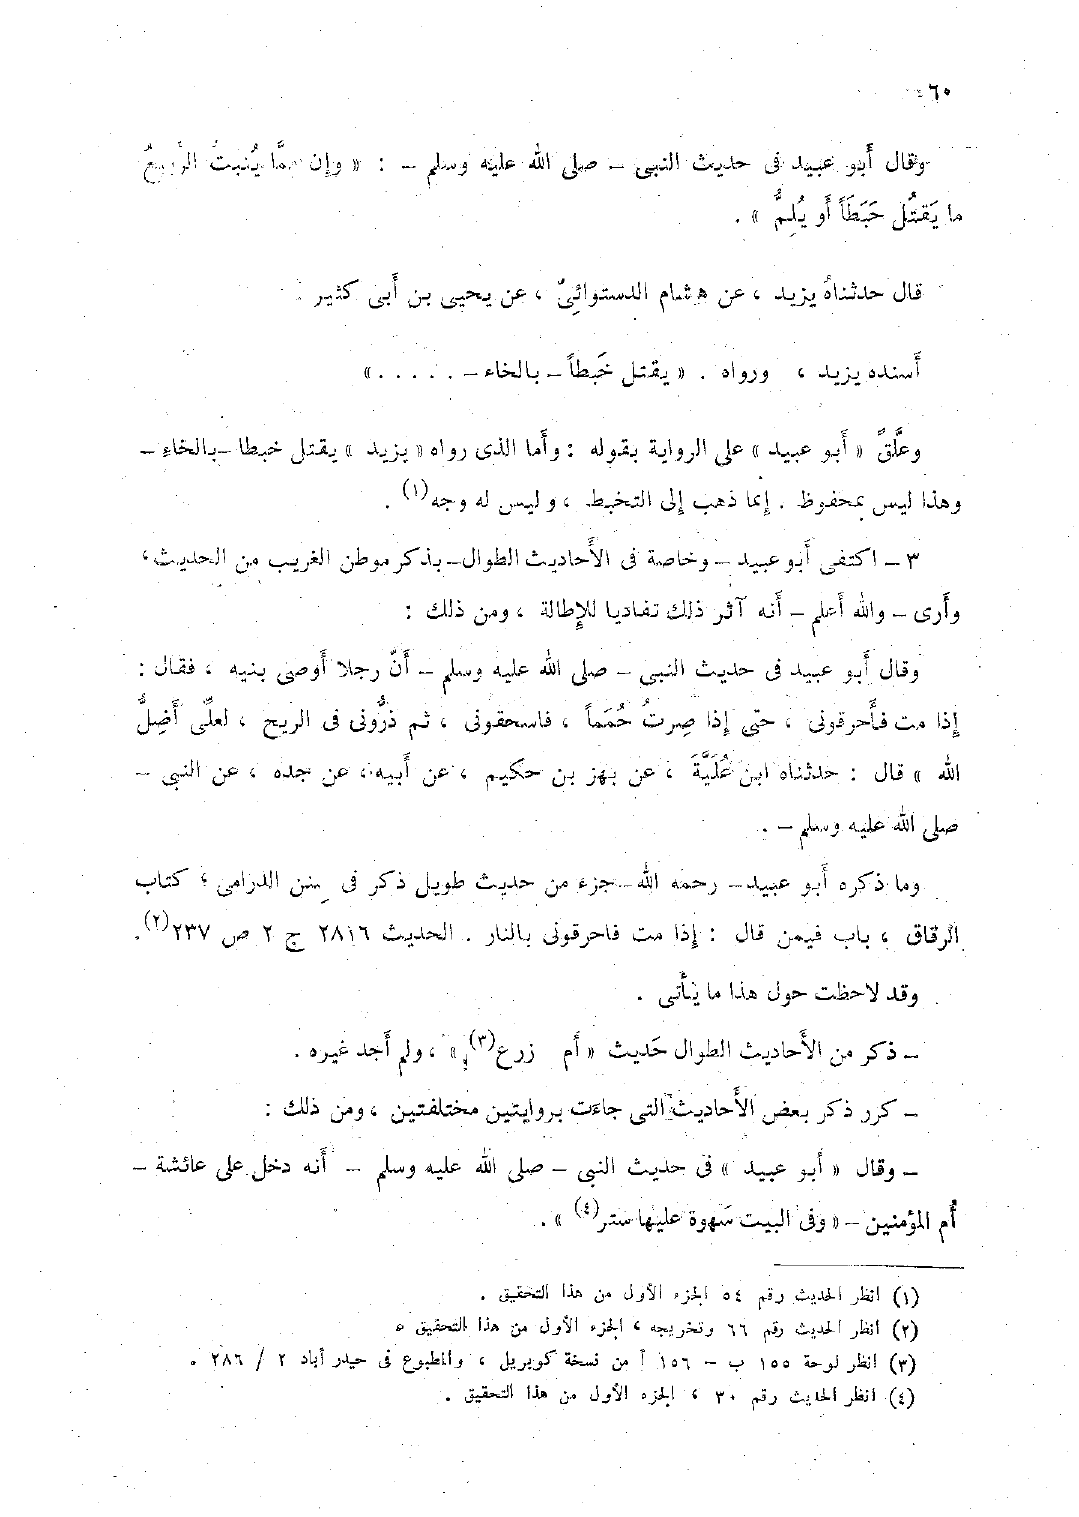 ٦٠
وقال أَبو عبيد فى حديث النبى – صلى الله عليه وسلم – : « وإن ممَّا يُنبتُ الرَّبيعُ
ما يَقتُل حَبَطَاً أَو يُلِمُّ » .
قال حدثناهُ يزيد ، عن هشام الدستوائِىِّ ، عن يحيى بن أَبى كثير .
أَسنده يزيد ، ورواه . « يقتل خَبطاً – بالخاء – . . . . . »
وعلَّقَ « أَبو عبيد » على الرواية بقوله : وأَما الذى رواه « يزيد » يقتل خبطا –بالخاءِ –
وهذا ليس بمحفوظ . إِنما ذهب إِلى التخبط ، وليس له وجه(١) .
٣ – اكتفى أَبو عبيد – وخاصة فى الأَحاديث الطوال– بذكر موطن الغريب من الحديث،
وأَرى – والله أَعلم – أَنه آثر ذلك تفاديا للإِطالة ، ومن ذلك :
وقال أَبو عبيد فى حديث النبى – صلى الله عليه وسلم – أَنّ رجلا أَوصى بنيه ، فقال :
إِذا مت فأَحرقونى ، حتى إِذا صِرتُ حُمَماً ، فاسحقونى ، ثم ذرُّونى فى الريح ، لعلِّى أَضِلُّ
الله » قال : حدثناه ابن عُلَيَّةَ ، عن بهز بن حكيم ، عن أَبيه ، عن جده ، عن النبى –
صلى الله عليه وسلم – .
وما ذكره أَبو عبيد– رحمه الله–جزء من حديث طويل ذكر فى سنن الدرامى ؛ كتاب
الرقاق ، باب فيمن قال : إِذا مت فاحرقونى بالنار . الحديث ٢٨١٦ ج ٢ ص ٢٣٧(٢).
وقد لاحظت حول هذا ما يأْتى .
– ذكر من الأَحاديث الطوال حَديث « أَم زرع(٣) » ، ولم أَجد غيره .
– كرر ذكر بعض الأَحاديث التى جاءَت بروايتين مختلفتين ، ومن ذلك :
– وقال « أَبو عبيد » فى حديث النبى – صلى الله عليه وسلم – أَنه دخل على عائشة –
أُم المؤمنين – « وفى البيت سَهوة عليها ستر(٤) » .
(١) انظر الحديث رقم ٥٤ الجزء الأول من هذا التحقيق .
(٢) انظر الحديث رقم ٦٦ وتخريجه ، الجزء الأول من هذا التحقيق .
(٣) انظر لوحة ١٥٥ ب – ١٥٦ أ من نسخة كوبريل ، والمطبوع فى حيدر أباد ٢ / ٢٨٦ .
(٤) انظر الحديث رقم ٣٠ ، الجزء الأول من هذا التحقيق .